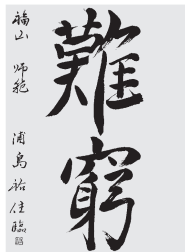 難窮
福山 師範 浦島祐佳臨